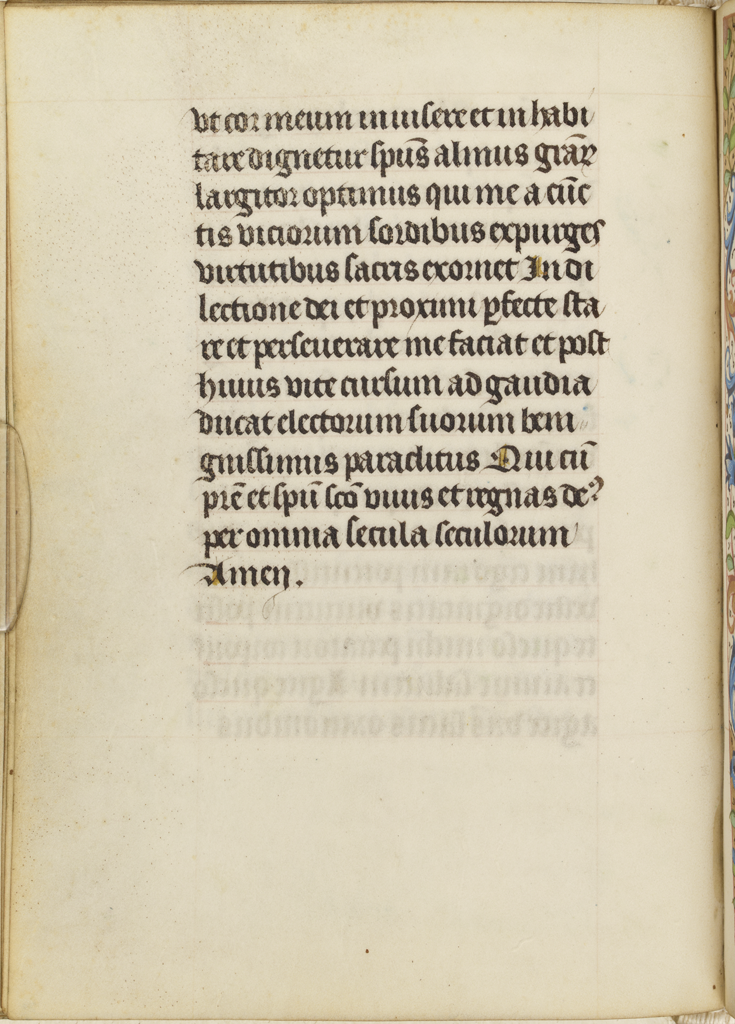 vt cor meum inuisere et in habi
tare dignetur spūs almus grāꝝ
largitor optimus qui me a cūc
tis viciorum sordibus expurges
virtutibus sacris exornet In di
lectione dei et proximi ꝑfecte sta
re et perseuerare me faciat et post
huius vite cursum ad gaudia
ducat electorum suorum beni
gnissimus paraclitus Qui cū
prē et spū scō viuis et regnas de⁹
per omnia secula seculorum
Amen.